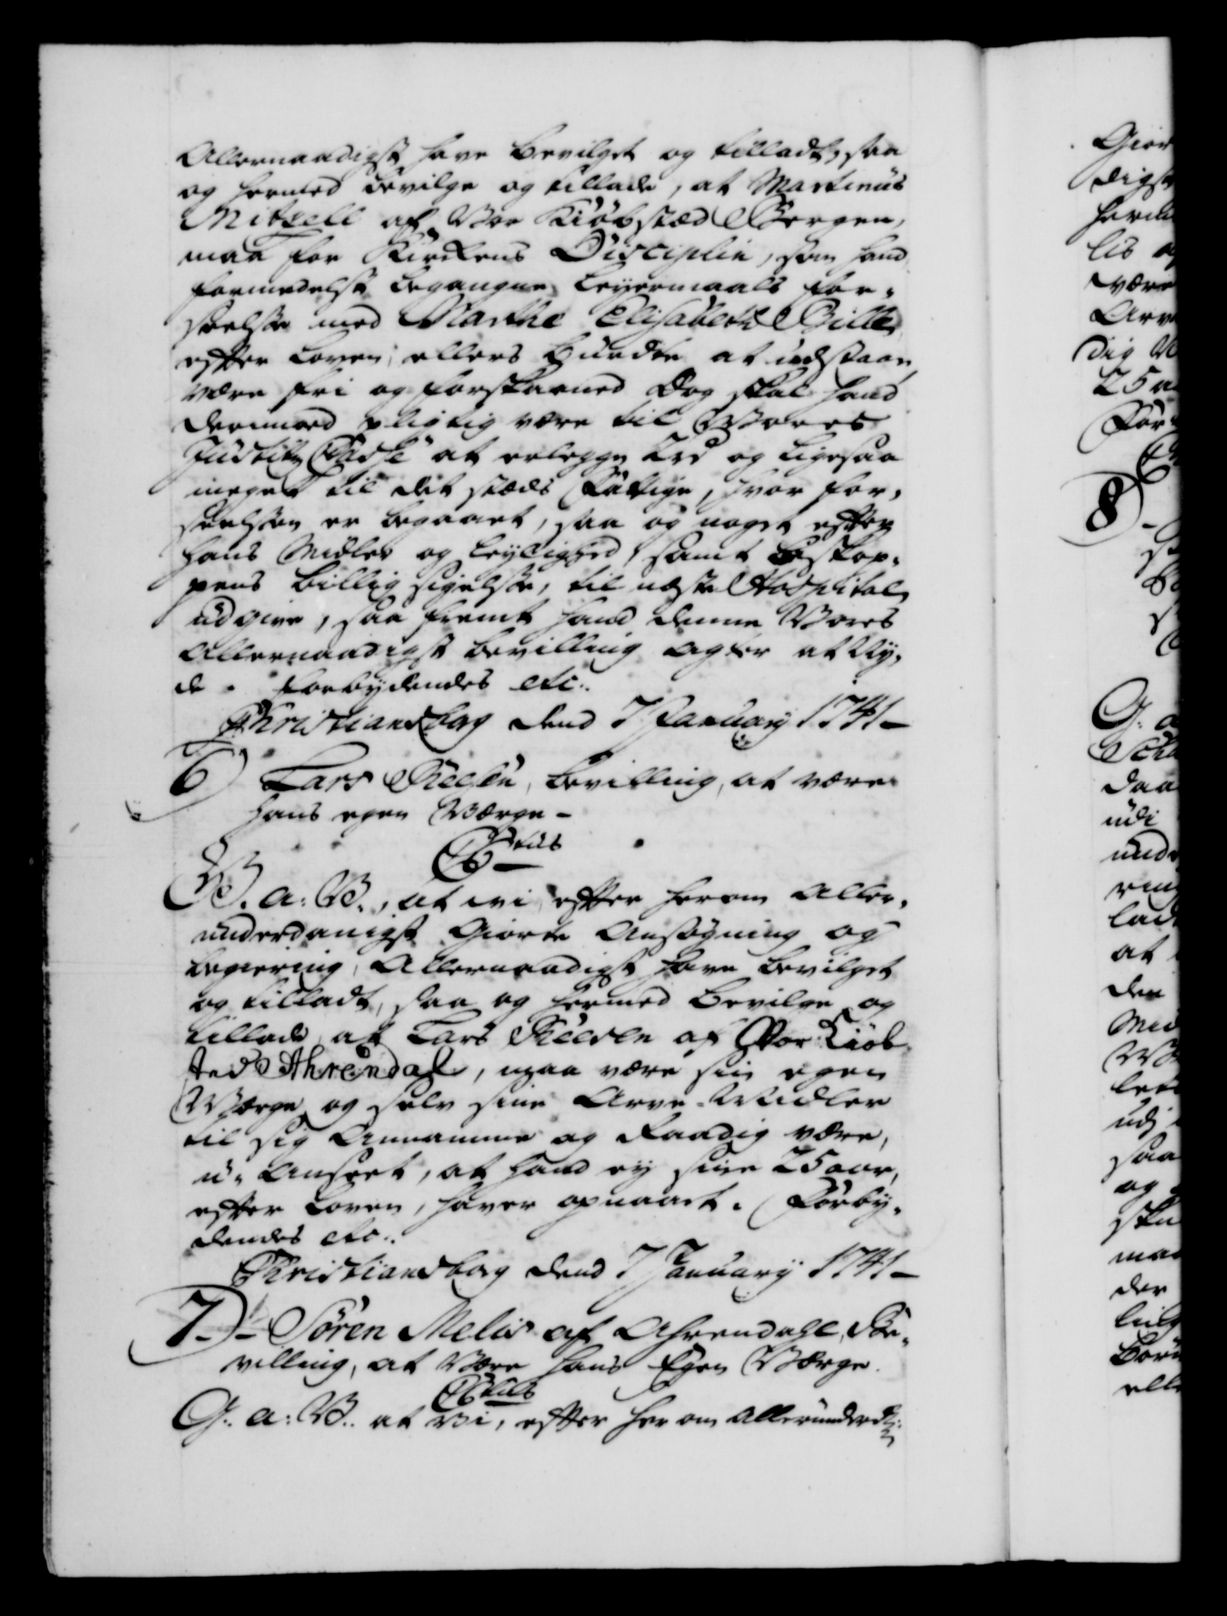 Allernaadigst have bevilget og tilladt, saa
og hermed bevilge og tillade, at Martinus
Mitzell af Vor Kiöbsted Bergen,
maa for Kirckens Disciplin, som hand
formedelst begangne leyermaals for-
seelse med Marthe Elisabeth Gille
effter Loven, ellers burdte at udstaae,
være fri og forskaaned Dog skal hand
dermed pligtig være til Vores
Justitz Casse at erlegge og ligesaa
meget til det stæds Fattige, hvor for-
seelsen er begaaet, saa og noget effter
hans Midler og leylighed, samt Biskop-
pens billig sigelse, til næste Hospital
udgive, saa fremt hand denne Vores
Allernaadigst bevilling agter at ny-
de. Forbydendes etc:
Christiansborg dend 7 January 1741
6) Lars Nielsen, bevilling, at være
hans egen Værge -
C 6tus
G. a: V., at vi, effter herom aller-
underdanigst giorte Ansögning og
begiering, Allernaadigst have bevilget
og tilladt, saa og hermed bevilge og
tillade, at Lars Nielsen af Vor Kiöb-
sted Ahrendal, maa være sin egen
Værge og selv sine Arve-Midler
til sig Annamme og Raadig være,
u-anseet, at hand ey sine 25 aar,
effter Loven, haver opnaaet. Forby-
dendes etc:
Christiansborg dend 7 January 1741
7.) - Sören Melis af Ahrendahl, Be-
villing, at være hans Egen Værge.
C 6tus
G. a: V. at vi, effter herom allerunderd:
Gior
digst
herm
lis a
være
Arv
dig V
25 a
For
8)
G: a
daa
udi
unde
ring
lad
at
den
Mid
udj
saa
og
mar
der
ell